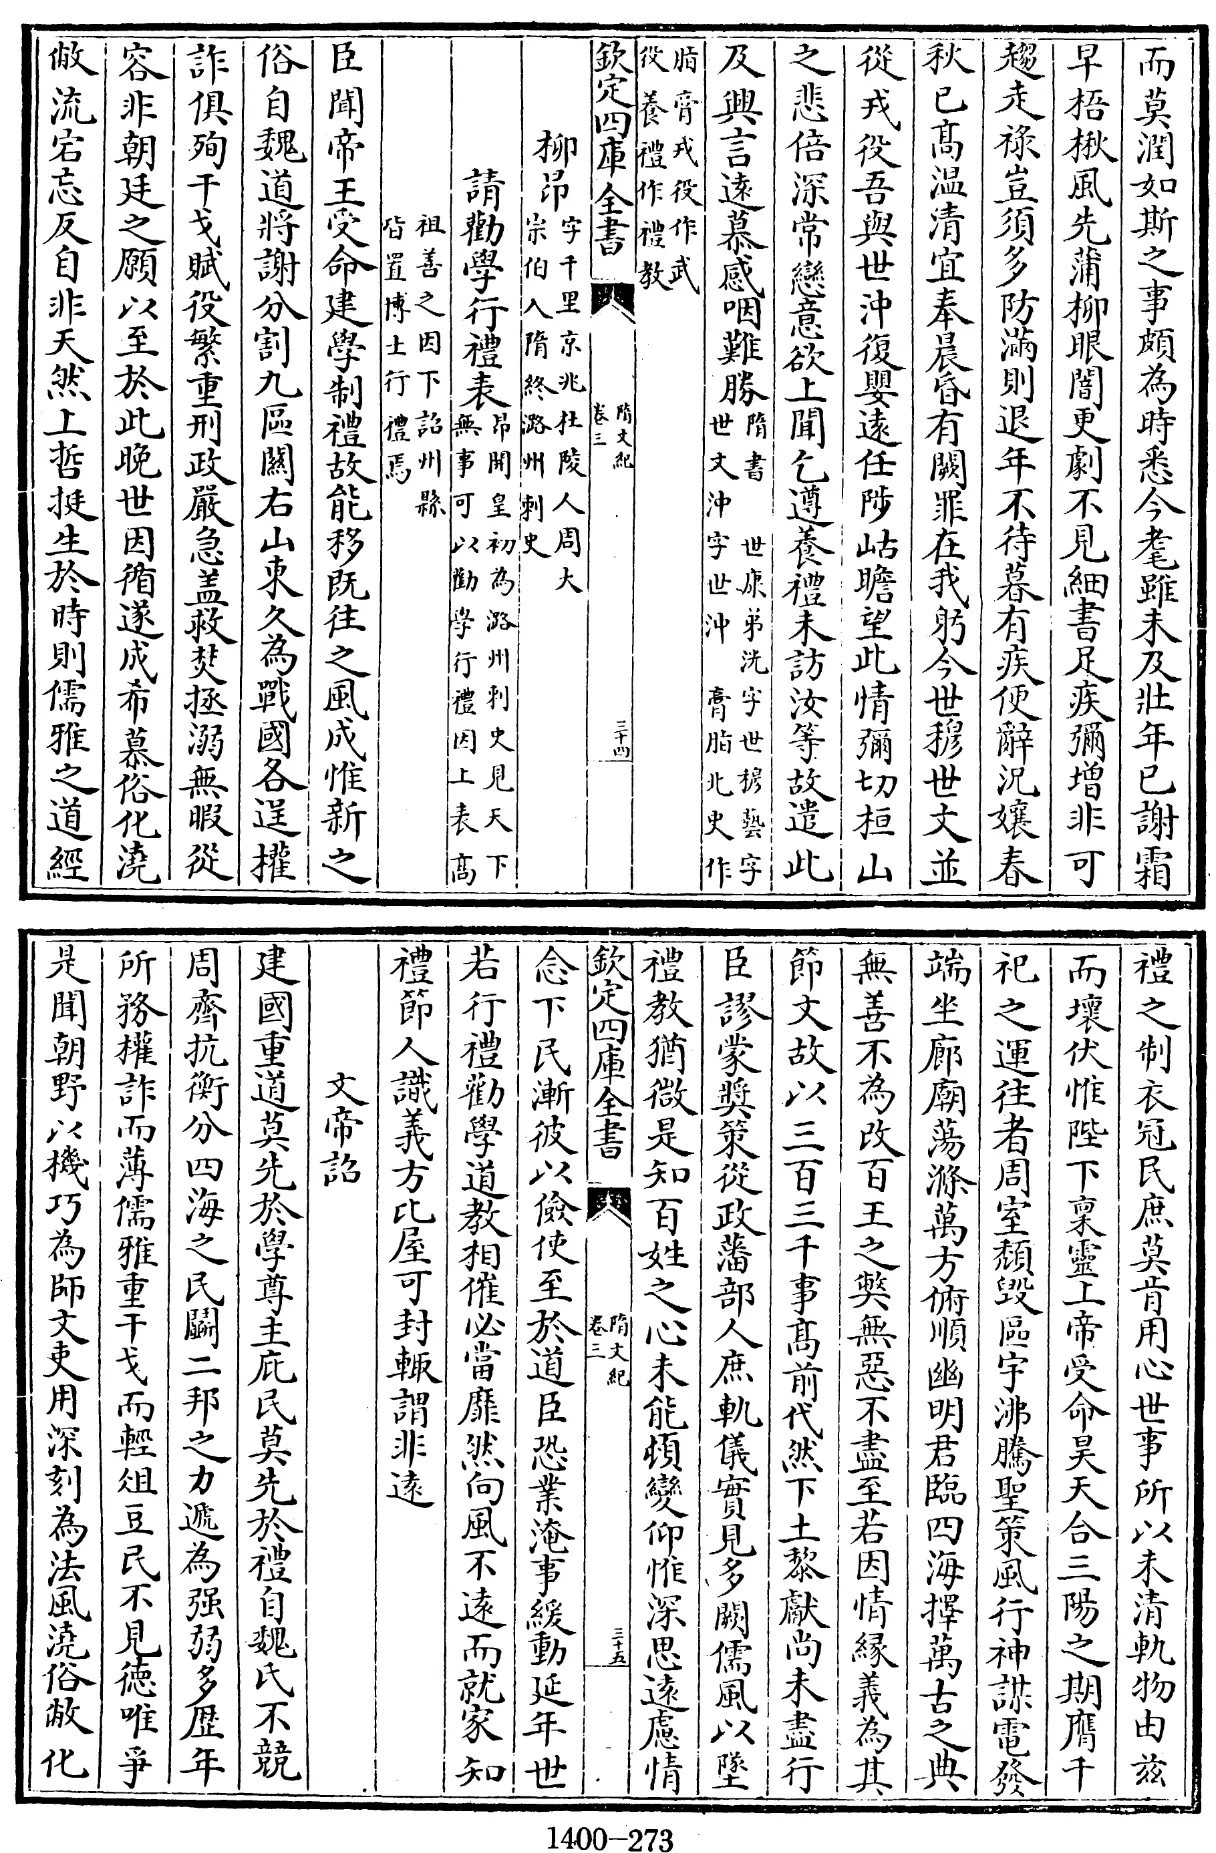 而莫潤如斯之事頗為時悉今耄雖未及壯年已謝霜
早梧楸風先蒲柳眼闇更劇不見細書足疾彌增非可
趨走祿豈須多防滿則退年不待暮有疾便辭況孃春
秋已髙温清宜奉晨昏有闕罪在我躬今世穆世文並
從戎役吾與世沖復嬰遠任陟岵瞻望此情彌切桓山
之悲倍深常戀意欲上聞乞遵養禮未訪汝等故遣此
及興言遠慕感咽難勝隋書 世康弟洸字世穆藝字
世文沖字世沖 膏脂北史作
脂膏戎役作武
役養禮作禮教
欽定四庫全書
隋文紀
卷三
三十四
柳昂字千里京兆杜陵人周大
宗伯入隋終潞州刺史
請勸學行禮表昂開皇初為潞州刺史見天下
無事可以勸學行禮因上表髙
祖善之因下詔州縣
皆置博士行禮焉
臣聞帝王受命建學制禮故能移既往之風成惟新之
俗自魏道將謝分割九區關右山東久為戰國各逞權
詐俱殉干戈賦役繁重刑政嚴急盖救焚拯溺無暇從
容非朝廷之願以至於此晚世因循遂成希慕俗化澆
敝流宕忘反自非天然上哲挺生於時則儒雅之道經
禮之制衣冠民庶莫肯用心世事所以未清軌物由兹
而壞伏惟陛下稟靈上帝受命昊天合三陽之期膺千
祀之運往者周室頹毀區宇沸騰聖策風行神謀電發
端坐廊廟蕩滌萬方俯順幽明君臨四海擇萬古之典
無善不為改百王之弊無惡不盡至若因情緣義為其
節文故以三百三千事髙前代然下土黎獻尚未盡行
臣謬蒙奬策從政藩部人庶軌儀實見多闕儒風以墜
禮教猶微是知百姓之心未能頓變仰惟深思遠慮情
欽定四庫全書
隋文紀
卷三
三十五
念下民漸彼以儉使至於道臣恐業淹事緩動延年世
若行禮勸學道教相催必當靡然向風不遠而就家知
禮節人識義方比屋可封輙謂非遠
文帝詔
建國重道莫先於學尊主庇民莫先於禮自魏氏不競
周齊抗衡分四海之民鬭二邦之力遞為强弱多歷年
所務權詐而薄儒雅重干戈而輕俎豆民不見德唯爭
是聞朝野以機巧為師文吏用深刻為法風澆俗敝化
1400-273